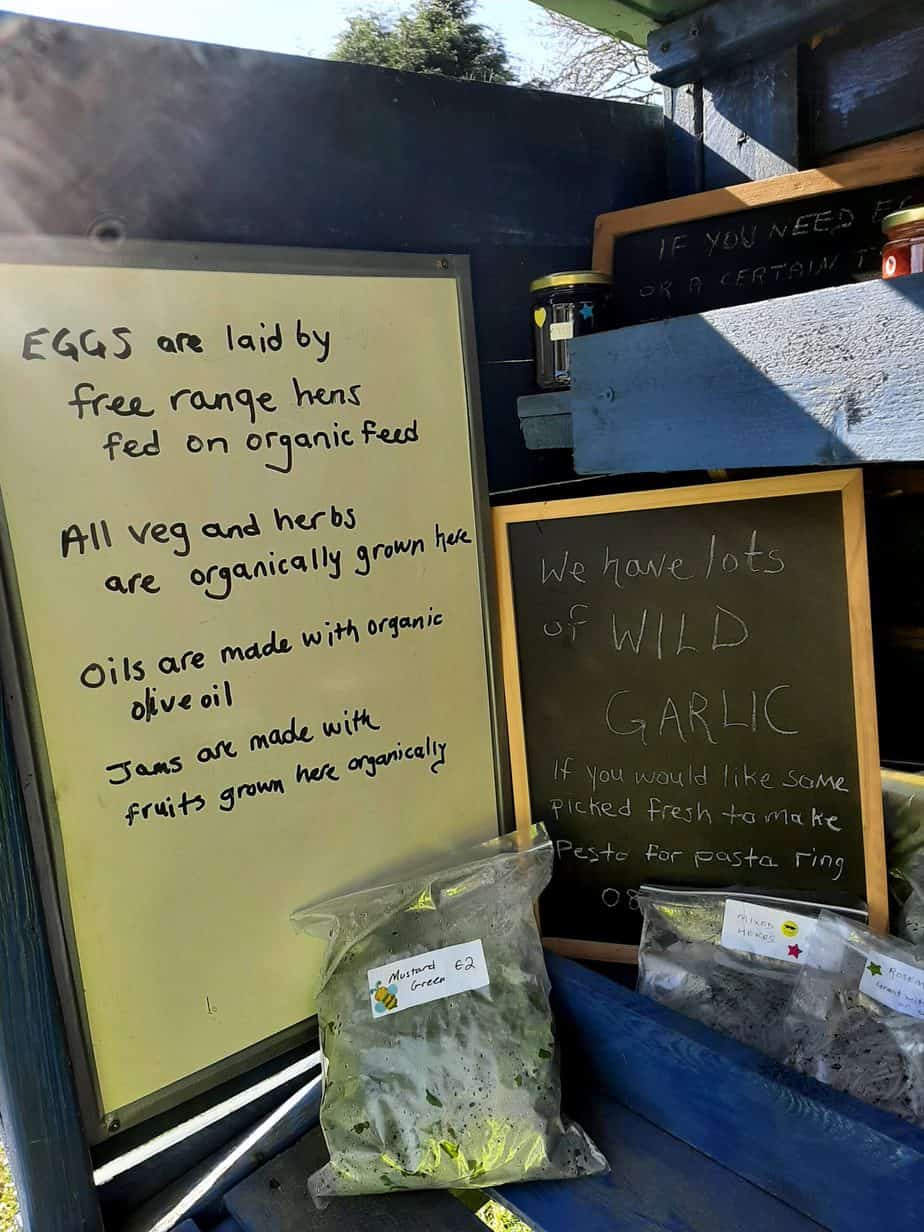 EGGS are laid by
free range hens
fed on organic feed
All veg and herbs
are organically grown here
Oils are made with organic
olive oil
Jams are made with
fruits grown here organically
IF YOU NEED
OR A CERTAIN
We have lots
of WILD
GARLIC
If you would like some
picked fresh to make
Pesto for pasta ring
08
Mustard €2
Green
MIXED
HERBS